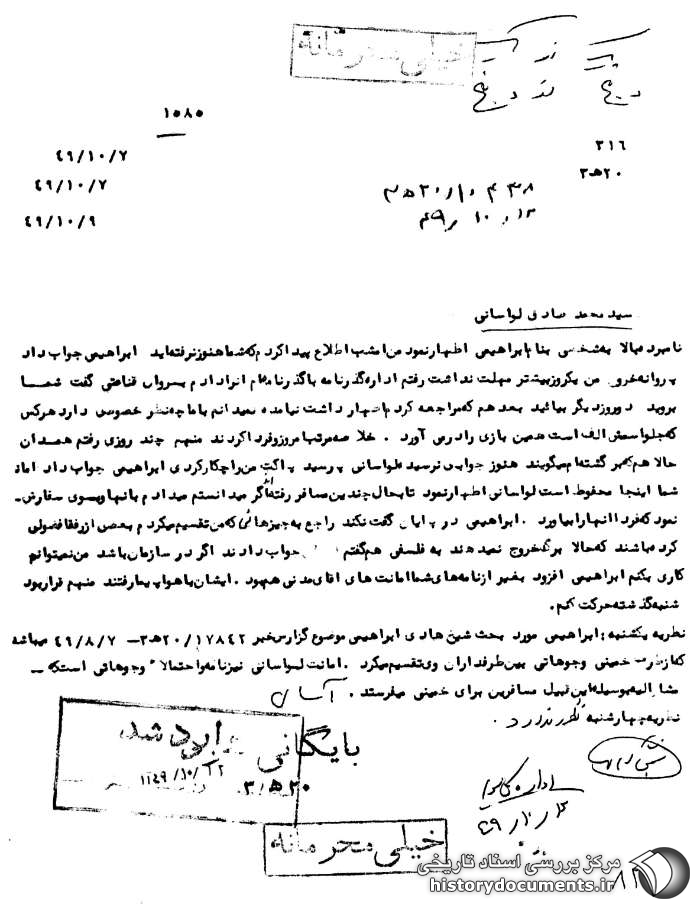 خیلی محرمانه
۱۰۸۰
۳۱۶
۴۹/۱۰/۷
۲۰ه‍۳
۴۹/۱۰/۷
۴۹/۱۰/۹
سید محمد صادق لواسانی
نامبرده بالا به شخصی بنام ابراهیمی اظهار نمود من امشب اطلاع پیدا کردم که شما هنوز نرفته‌اید ابراهیمی جواب داد
پروانه خروج من یکروز بیشتر مهلت نداشت رفتم اداره گذرنامه با گذرنامه‌ام انرا دادم بسروان قناعتی گفت شما
بروید دو روز دیگر بیائید بعد هم که مراجعه کردم اظهار داشت نیامده نمیدانم با ما چه نظر خصوصی دارد هرکس
که جلو اسمش الف است همین بازی را در می آورد . خلاصه مرتبا امروز و فردا کردند منهم چند روزی رفتم همدان
حالا هم که برگشته‌ام میگویند هنوز جوابی نرسیده لواسانی پرسید پاکت من را چکار کردی ابراهیمی جواب داد امانت
شما اینجا محفوظ است لواسانی اظهار نمود تا بحال چندین مسافر رفته اگر میدانستم میدادم بانها و بسوی سفارش
نمود که فردا انها را بیاورد . ابراهیمی در پایان گفت نکند راجع به چیزهائی که من تقسیم میکردم بعضی از رفقا فضولی
کرده باشند که حالا برگ خروج نمیدهند به فلسفی هم گفتم جواب دادند اگر در سازمان باشد من نمیتوانم
کاری بکنم ابراهیمی افزود بغیر از نامه‌های شما امانت های اقای مدنی هم بود . ایشان با هواپیما رفتند منهم قرار بود
شنبه گذشته حرکت کنم.
نظریه یکشنبه : ابراهیمی مورد بحث شیخ هادی ابراهیمی موضوع گزارش خبر ۲۰/۱۷۸۴۲ه‍۳ – ۴۹/۸/۷ میباشد
که از طرف خمینی وجوهاتی بین طرفداران وی تقسیم میکرد . امانت لواسانی نیز نامه و احتمالا وجوهاتی است که –
مشارالیه بوسیله این قبیل مسافرین برای خمینی میفرستد . آسان
نظریه چهارشنبه نظری ندارد .
بایگانی وارد شد
۱۳۴۹/۱۰/۲۲
۲۰ه‍۳
خیلی محرمانه
مرکز بررسی اسناد تاریخی
historydocuments.ir